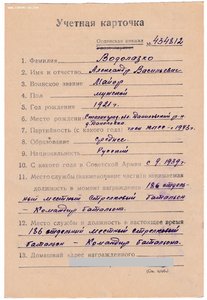 Учетная карточка
Орденская книжка № 434812
1. Фамилия Водолазко
2. Имя и отчество Александр Васильевич
3. Воинское звание Майор
4. Пол мужской
5. Год рождения 1921 г.
6. Место рождения
7. Партийность (с какого года) член КПСС – 1943 г.
8. Образование Среднее
9. Национальность Русский
10. С какого года в Советской Армии с 9.1939 г.
11. Место службы (наименование части) и занимаемая
должность в момент награждения 186 отдель-
ный местный стрелковый Батальон
– Командир батальона.
12. Место службы и должность в настоящее время
186 отдельный местный стрелковый ба-
тальон – Командир батальона.
13. Домашний адрес награжденного
(См. н/об.)